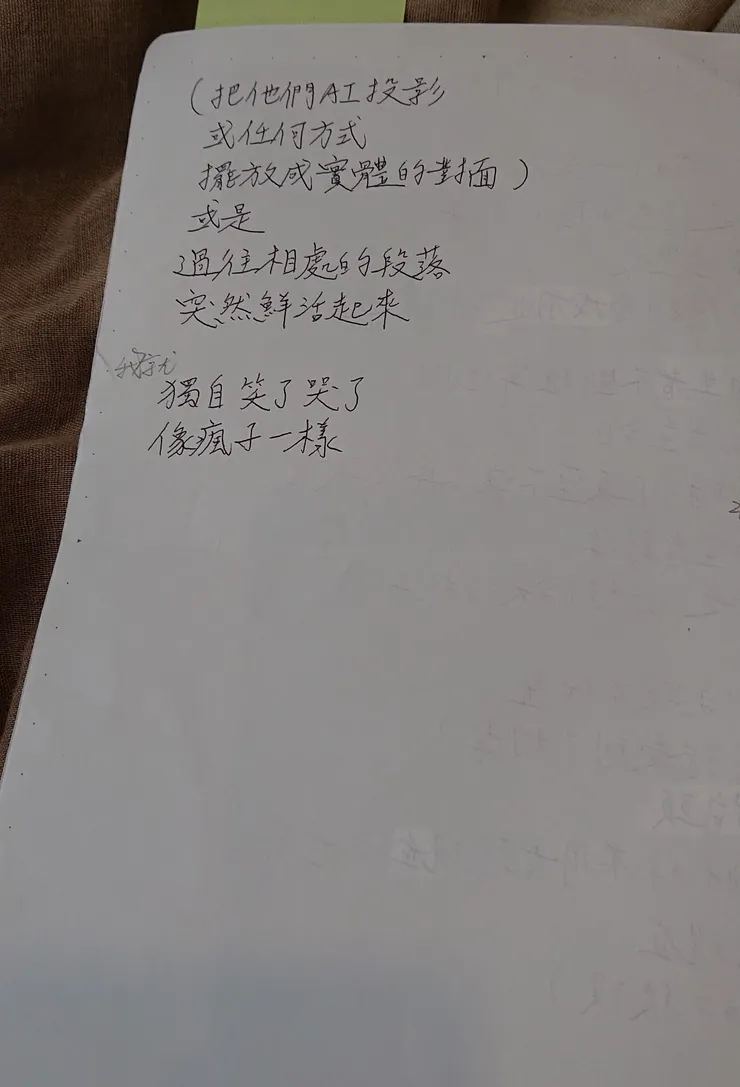 (把他們AI投影
或任何方式
擺放成實體的對面)
或是
過往相處的段落
突然鮮活起來
我就
獨自笑了哭了
像瘋子一樣